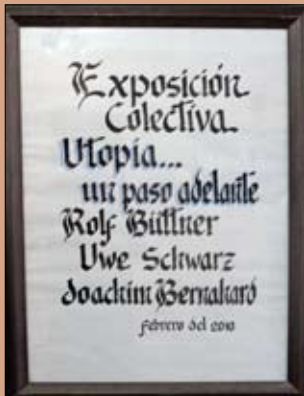 Exposición
Colectiva
Utopia...
un paso adelante
Rolf Büttner
Uwe Schwarz
Joachim Bernahard
febrero del 2010